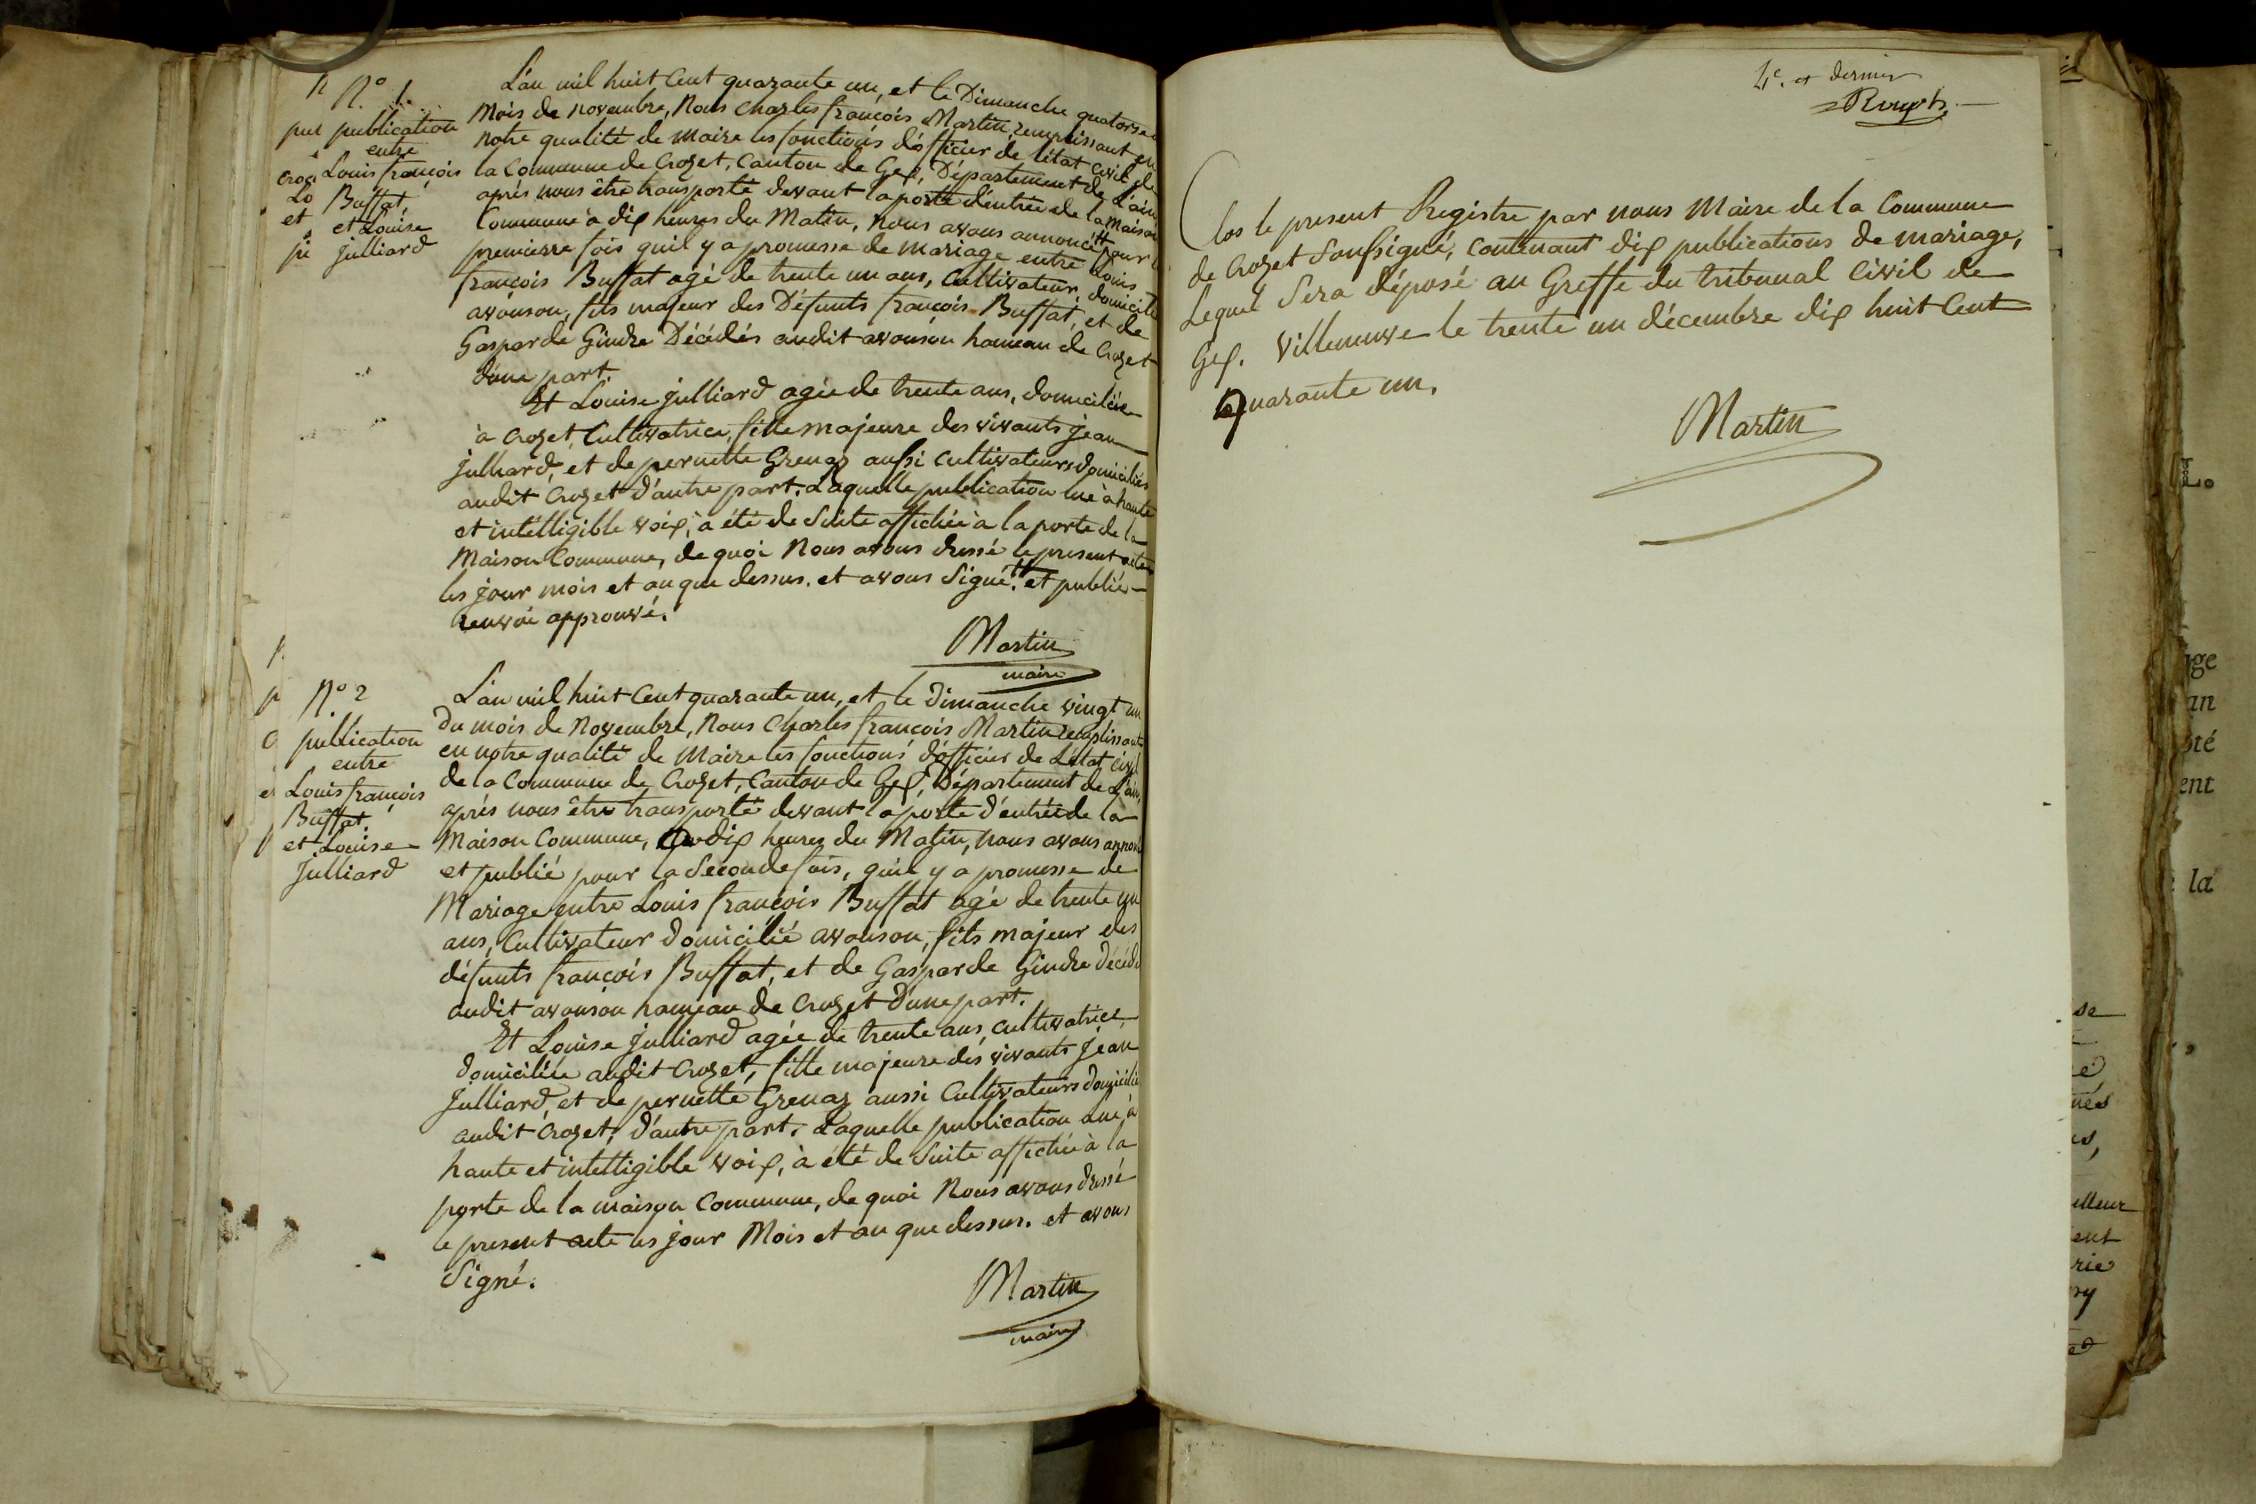 N.° 1.
publication
entre
Louis françois
Buffat,
et Louise
julliard
L'an mil huit Cent quarante un, et le Dimanche quatorze
Mois de novembre, Nous Charles françois Martin, remplissant en
notre qualité de Maire les fonctions d'officier de l'état civil de
la Commune de Crozet, Canton de Gex, Département de L'ain
après nous être transporté devant la porte d'entrée de la Maison
Commune à dix heures du Matin, nous avons annoncé # pour la
premierre fois qu'il y a promesse de mariage entre Louis
françois Buffat agé de trente un ans, Cultivateur, domicilié
avouson, fils majeur des Défunts françois Buffat, et de
Gasparde Gindre Décédés audit avouson hameau de Crozet
d'une part.
Et Louise julliard agée de trente ans, domiciliée
à Crozet, Cultivatrice, fille majeure des vivants jean
julliard, et de pernette Grenaz aussi Cultivateurs domiciliés
audit Crozet d'autre part. Laquelle publication lue à haute
et intelligible voix, à été de Suite affichée à la porte de la
Maison Commune, de quoi Nous avons dressé le present acte
les jour mois et an que dessus. et avons Signé. # et publié
renvoi approuvé.
Martin
maire
N.° 2
publication
entre
Louis françois
Buffat.
et Louise
Julliard
L'an mil huit Cent quarante un, et le Dimanche vingt un
Du mois de Novembre, Nous Charles françois Martin remplissant
en notre qualité de Maire les fonctions d'officier de L'état civil
de la Commune de Crozet, Canton de Gex, Département de L'ain,
après nous être transporté devant la porte d'entrée de la
Maison Commune, dix heures du Matin, nous avons annoncé
et publié pour la Seconde fois, qu'il y a promesse de
Mariage entre Louis françois Buffat agé de trente un
ans, Cultivateur domicilié avouson, fils majeur des
défunts françois Buffat, et de Gasparde Gindre Décédé
audit avouson hameau de Crozet D'une part.
Et Louise julliard agée de trente ans, cultivatrice,
domiciliée audit Crozet, fille majeure des vivants jean
Julliard, et de pernette Grenaz aussi Cultivateurs domiciliés
audit Crozet, d'autre part. Laquelle publication lue à
haute et intelligible voix, à été de Suite affichée à la
porte de la maison Commune, de quoi Nous avons dressé
le present acte les jour Mois et an que dessus. et avons
Signé.
Martin
maire
4e. et dernier
Clos le present Registre par nous Maire de la Commune
de Crozet Soussigné, Contenant dix publications de mariage,
Lequel Sera déposé au Greffe du tribunal Civil de
Gex. Villeneuve le trente un décembre dix huit Cent
Quarante un.
Martin